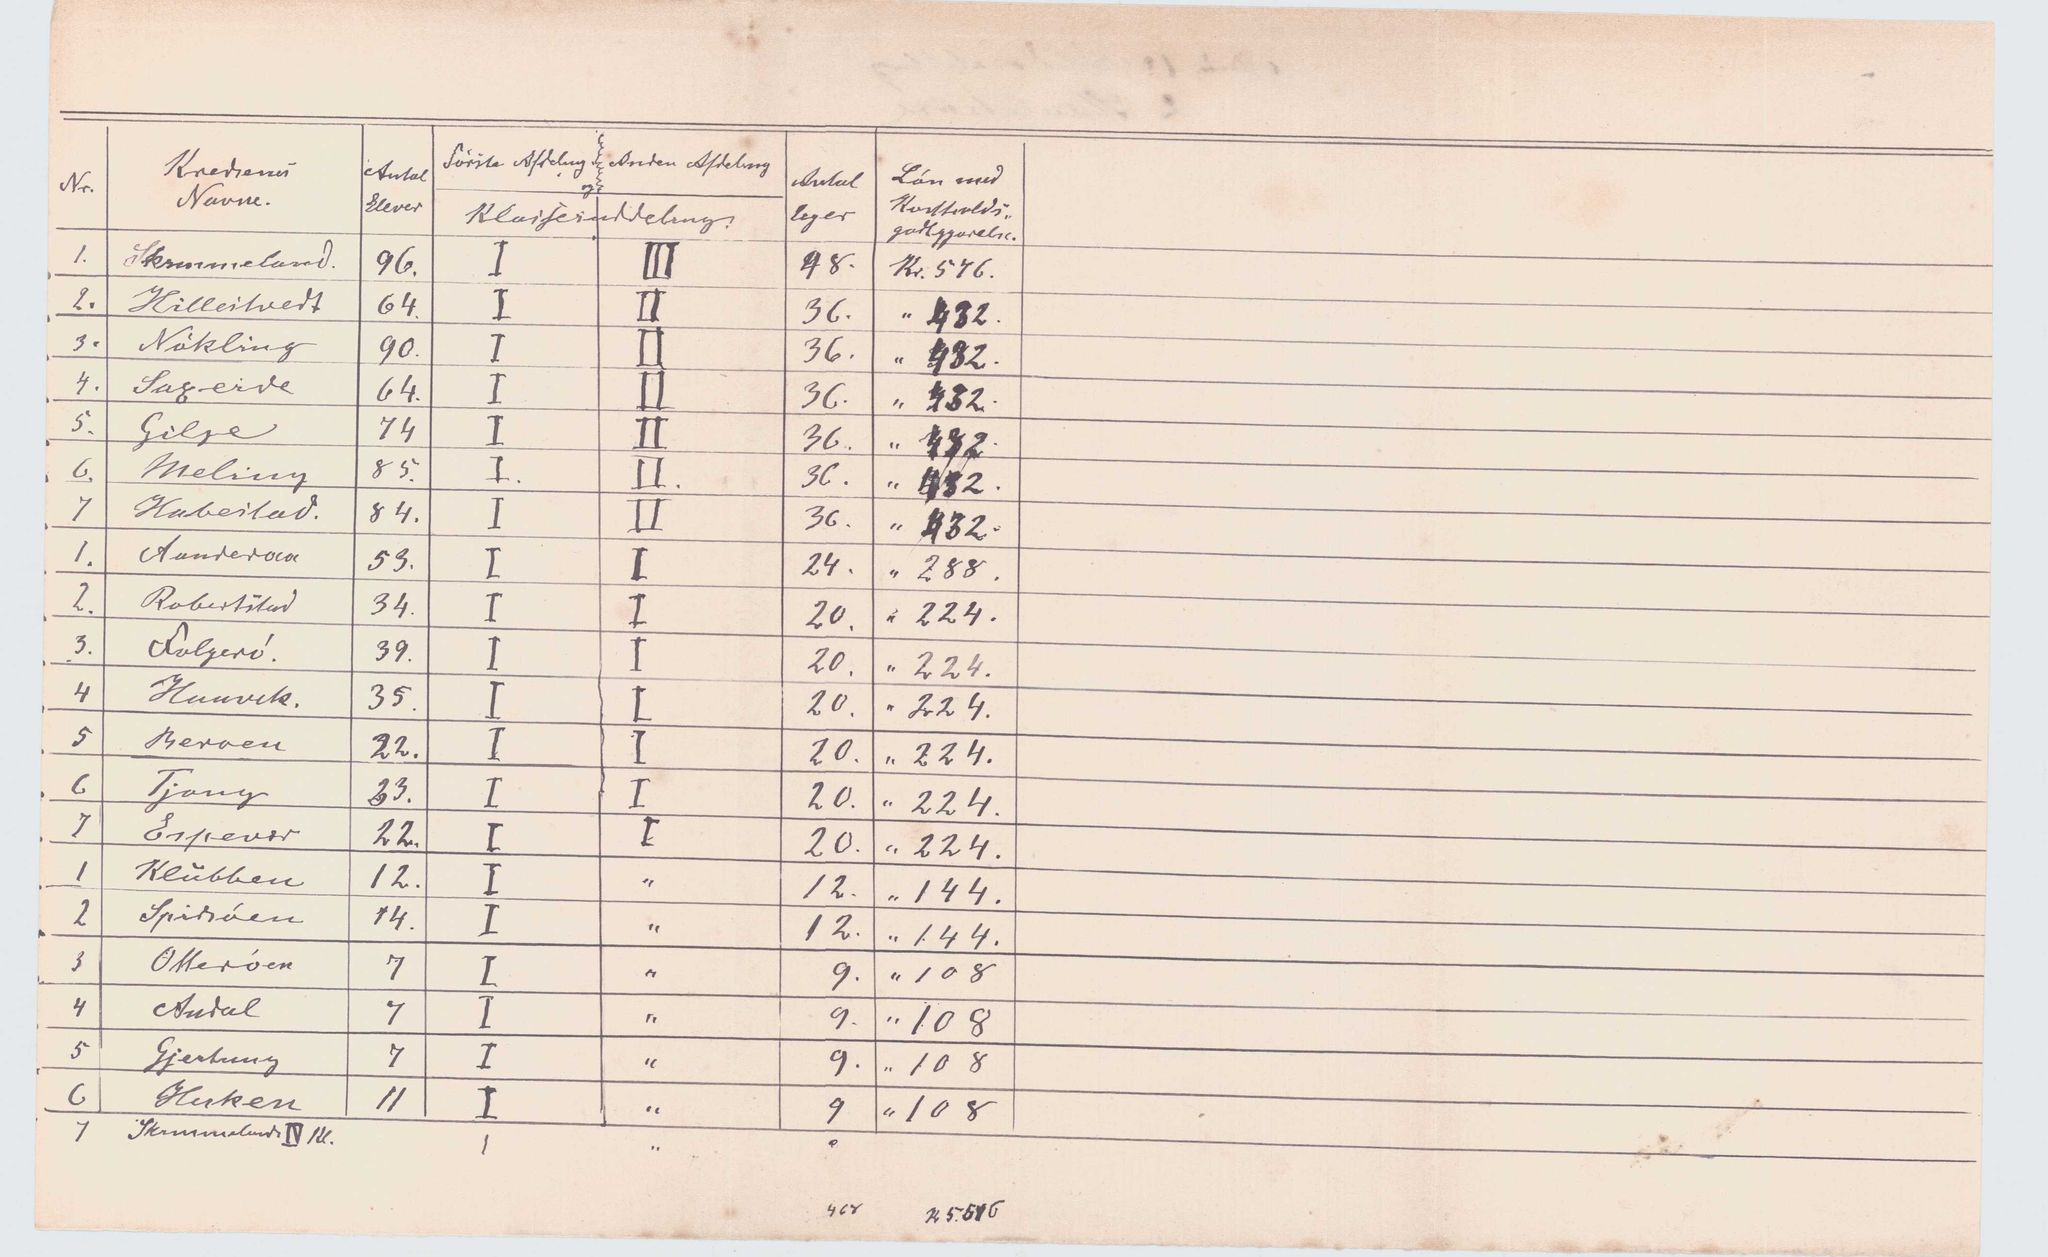 Nr. Kredsens Navne. Antal Elever Förste Afdeling og Anden Afdeling Klasseinddeling. Antal Uger Lön med Kostholds- godtgjörelse.
1. Skrummeland. 96. I III 48. Kr. 576.
2. Hillestvedt 64. I II 36. " 432.
3. Nökling 90. I II 36. " 432.
4. Sageide 64. I II 36. " 432.
5. Gilje 74 I II 36. " 432.
6. Meling 85. I. II. 36. " 432.
7 Habestad. 84. I II 36. " 432.
1. Aanderaa 53. I I 24. " 288.
2. Robertstad 34. I I 20. " 224.
3. Folgerö. 39. I I 20. " 224.
4 Haavik. 35. I I 20. " 224.
5 Beroen 22. I I 20. " 224.
6 Tjong 23. I I 20. " 224.
7 Espevær 22. I I 20. " 224.
1 Klübben 12. I " 12. " 144.
2 Spidsöen 14. I " 12. " 144.
3 Otteröen 7 I " 9. " 108
4 Andal 7 I " 9. " 108
5 Gjertung 7 I " 9. " 108
6 Husken 11 I " 9 " 108
7 Skrummelands IV Kl. 1 "
468